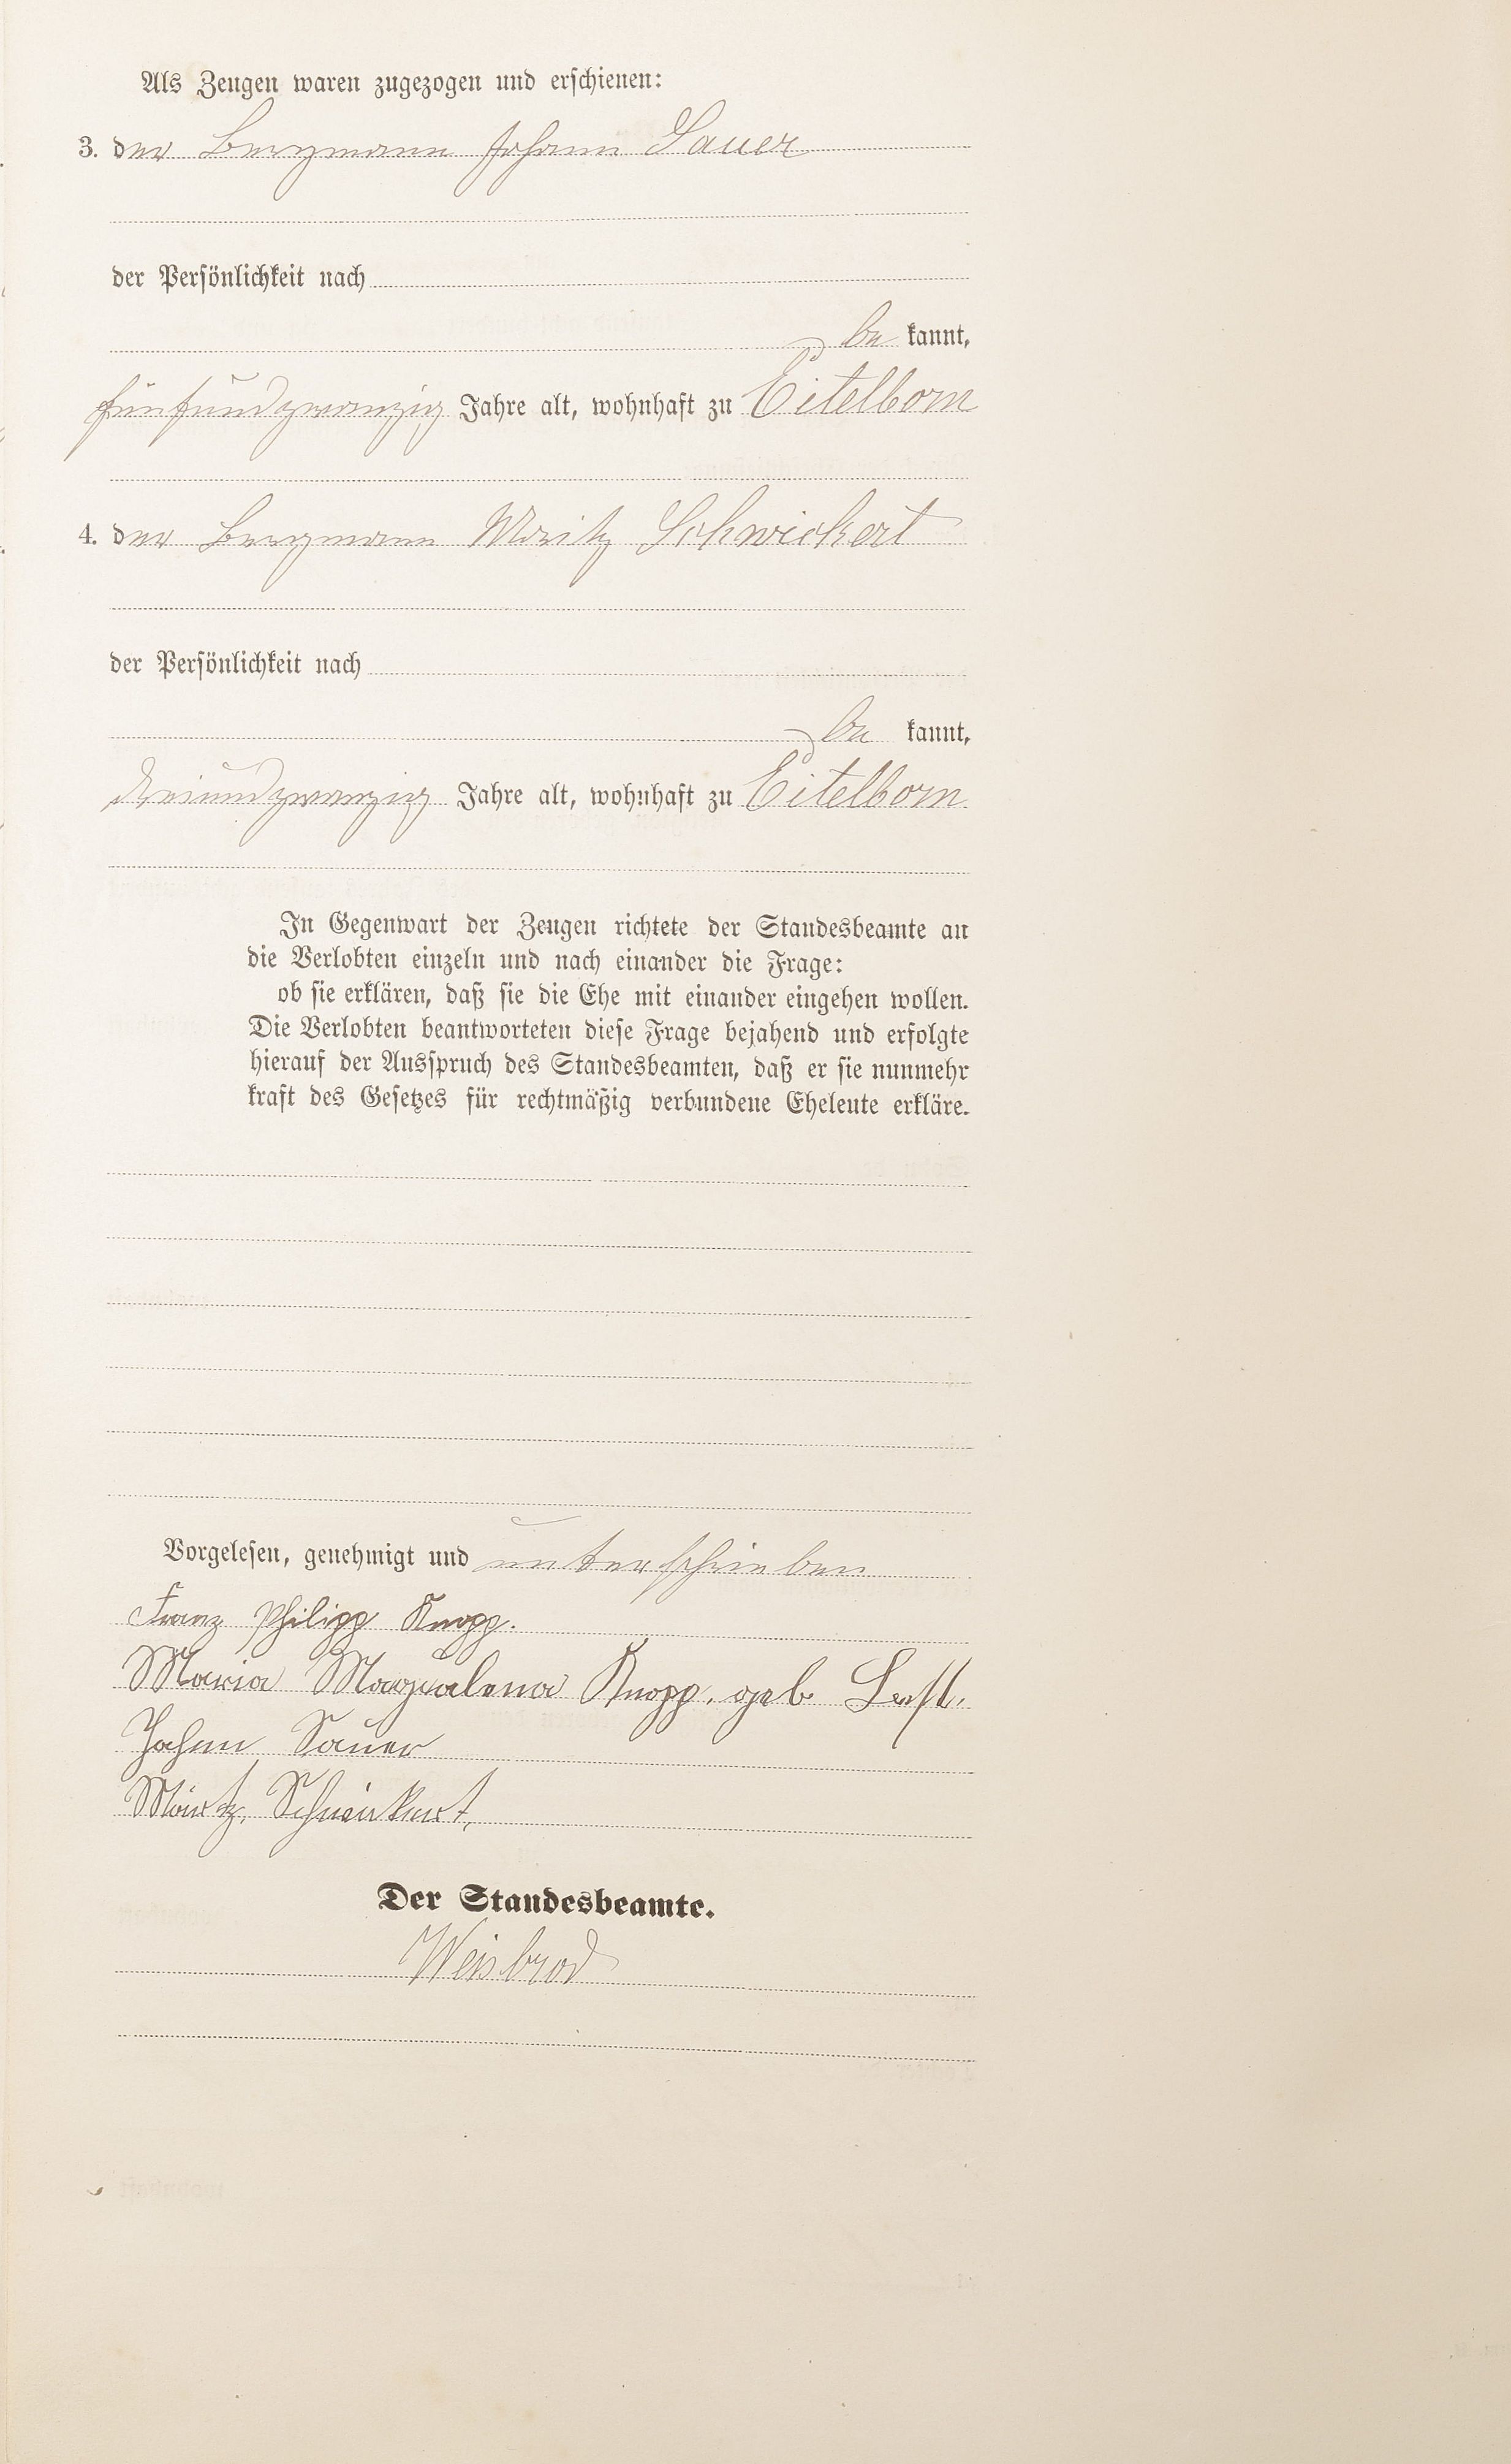 Als Zeugen waren zugezogen und erschienen:
3. der Bergmann Johann Sauer
der Persönlichkeit nach
be kannt,
fünfundzwanzig Jahre alt, wohnhaft zu Eitelborn
4. der Bergmann Moritz Schwickert
der Persönlichkeit nach
be kannt,
dreiundzwanzig Jahre alt, wohnhaft zu Eitelborn
In Gegenwart der Zeugen richtete der Standesbeamte an
die Verlobten einzeln und nach einander die Frage:
ob sie erklären, daß sie die Ehe mit einander eingehen wollen.
Die Verlobten beantworteten diese Frage bejahend und erfolgte
hierauf der Ausspruch des Standesbeamten, daß er sie nunmehr
kraft des Gesetzes für rechtmäßig verbundene Eheleute erkläre.
Vorgelesen, genehmigt und unterschrieben
Franz Philipp Knopp.
Maria Magdalena Knopp, geb.
Johann Sauer
Moritz Schwickert,
Der Standesbeamte.
Weisbrod